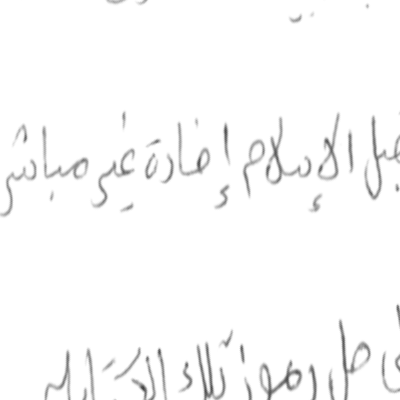 قبل الإسلام إفادة غير مباشر
حل رموز تلك الكتابات